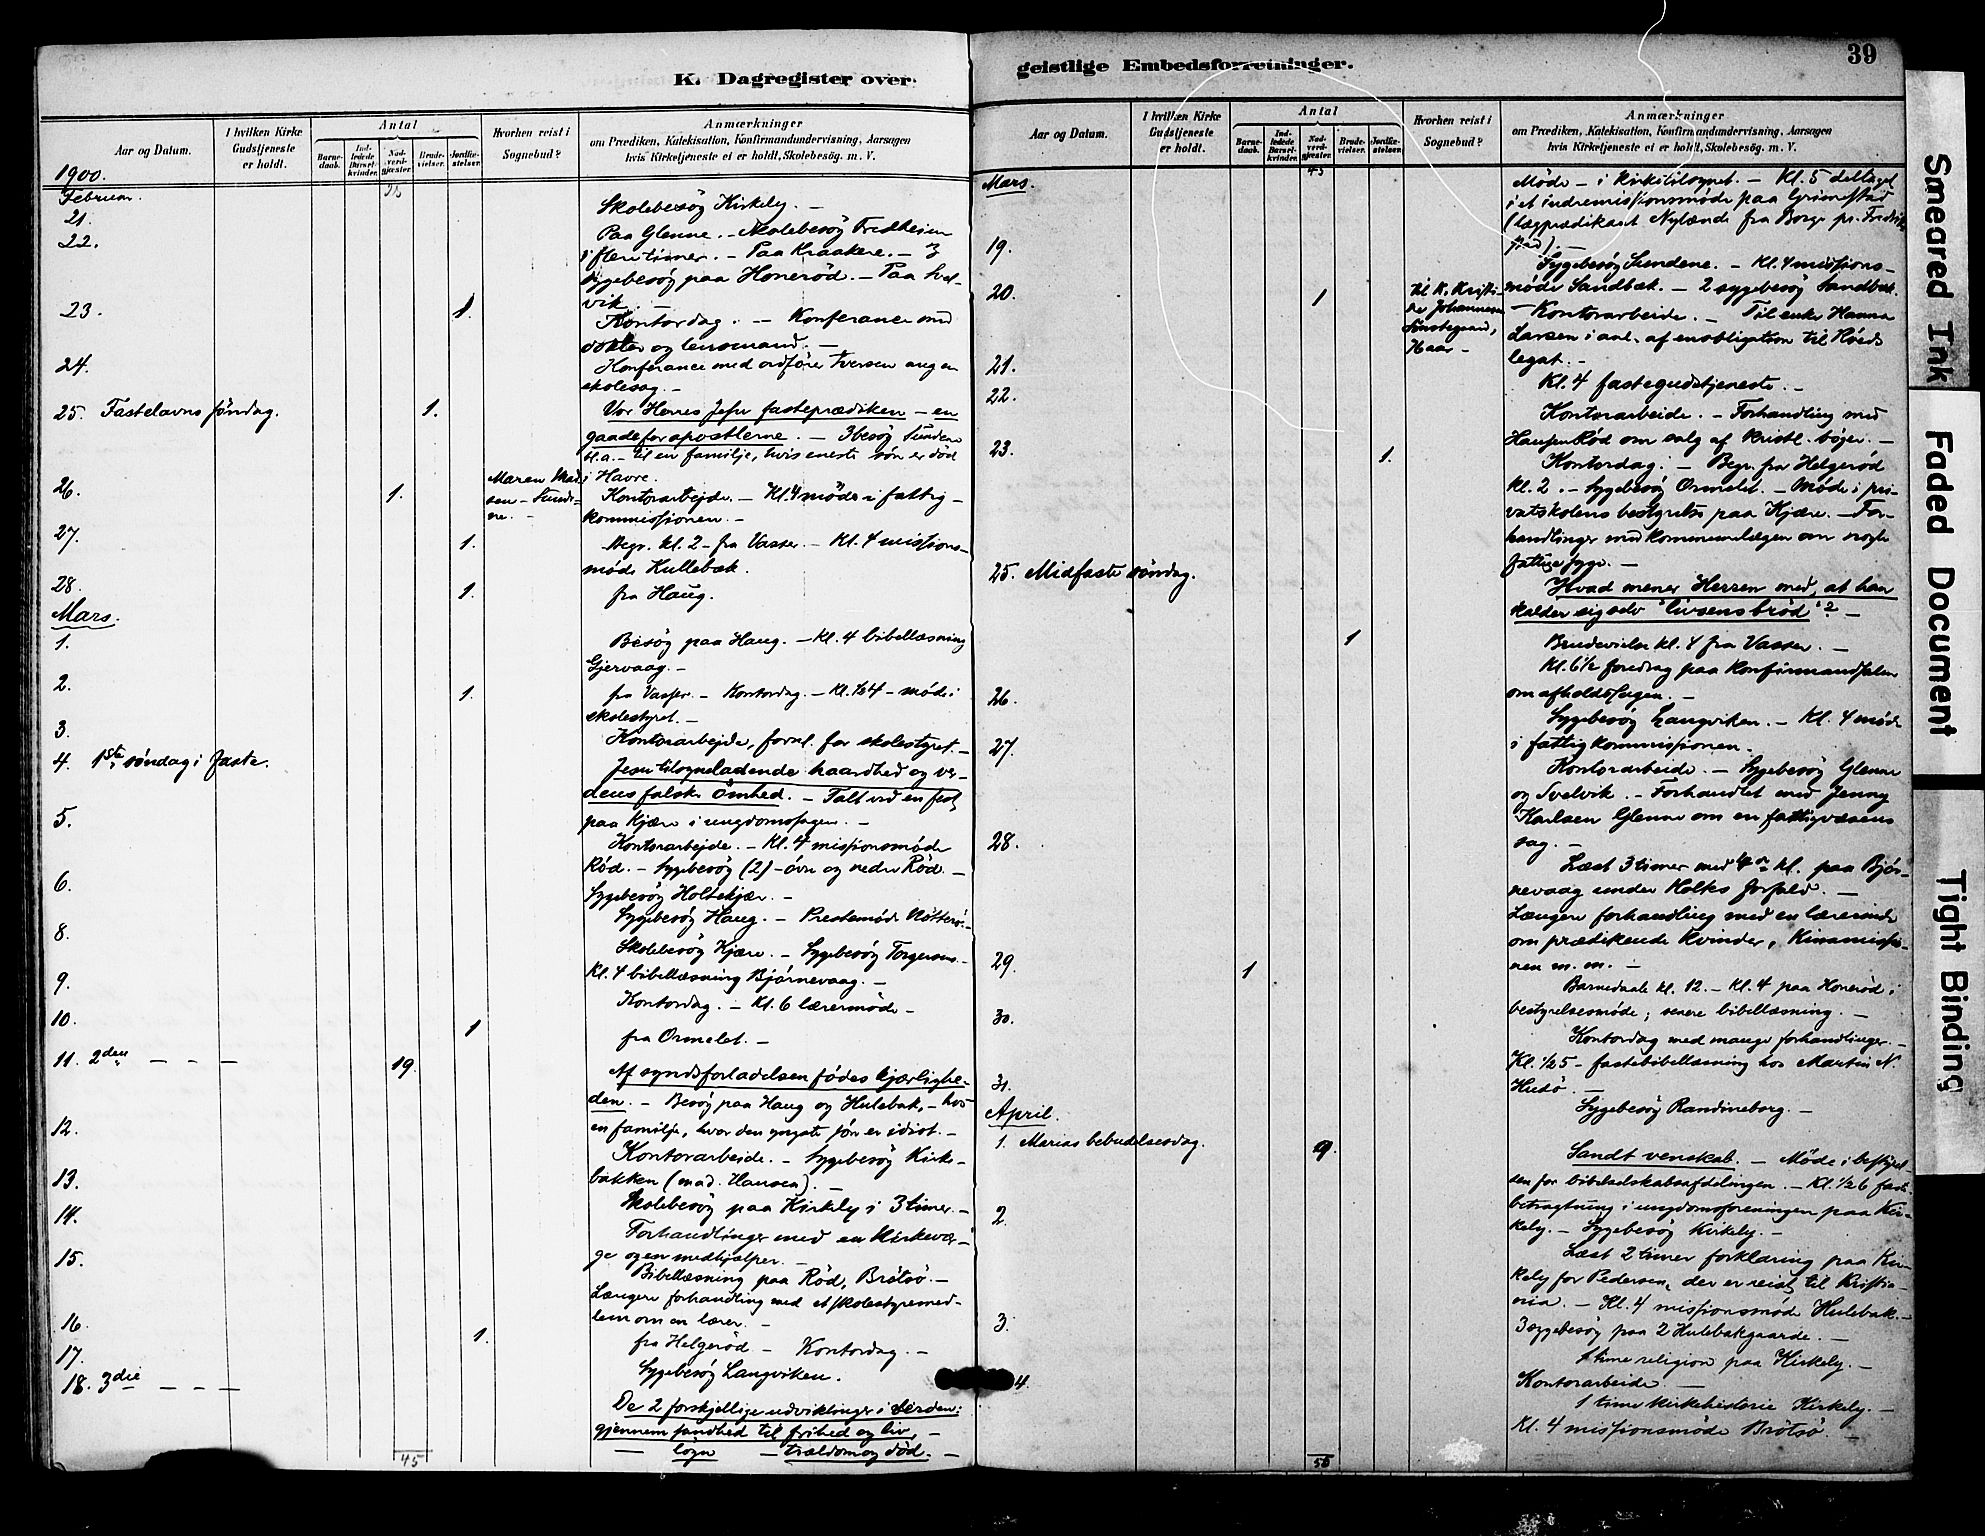 K. Dagregister over
Aar og Datum.
I hvilken Kirke Gudstjeneste er holdt.
Antal
Barne-daab.
Ind-ledede Barsel-kvinder.
Nad-verd-gjæster.
Brude-vielser.
Jordfæ-stelser.
Hvorhen reist i Sognebud?
Anmærkninger
om Prædiken, Katekisation, Konfirmandundervisning, Aarsagen
hvis Kirketjeneste ei er holdt, Skolebesög. m. V.
1900.
Februar.
21. Skolebesög Kirkely. –
22. Paa Glenne. – Skolebesög Fredheim
i flere timer. – Paa Kraakere. – 3
sygebesög paa Honeröd. – Paa Svel-
vik. –
23. 1. Kontordag. – Konferance med
dokter og lensmand. –
24. Konferance med ordförer Iversen ang en
skolesag. –
25. Fastelavns söndag. 1. Vor Herres Jesu fasteprædiken – en
gaade for apostlerne. – 3 besög Sundene
bl.a. – til en familje, hvis eneste sön er död
i Havre.
26. 1. Maren Mad-
sen – Sunde-
ne. –
Kontorarbejde. – Kl. 4 möde i fattig-
kommissionen. –
27. 1. Begr. kl. 2 – fra Vasser. – Kl. 4 missions-
möde Hullebæk.
28. 1. fra Haug.
Mars.
1. Besög paa Haug. – Kl. 4 bibellæsning
Gjervaag. –
2. 1. fra Vasser. – Kontordag. – Kl. 1/2 4 – möde i
skolestyret. –
3. Kontorarbejde, forml. for skolestyret. –
4. 1ste söndag i faste. Jesu tilsyneladende haardhed og ver-
dens falske ömhed. – Talt ved en fest
paa Kjære i ungdomssagen. –
5. Kontorarbejde. – Kl. 4 missionsmöde
Röd. – Sygebesög (2) – övre og nedre Röd. –
6. Sygebesög Holtekjær. –
Sygebesög Haug. – Prestemöde Nötterö. –
8. Skolebesög Kjære. – Sygebesög Torgersens. –
Kl. 4 bibellæsning Bjørnevaag. –
9. Kontordag. – Kl. 6 lærermöde –
10. 1 fra Ormelet. –
11. 2den – – – 19. Af syndsforladelsen födes kjærlighe-
den. – Besög paa Haug og Hulebak, – hos
en familje, hvor den yngste sön er idiot. –
12. Kontorarbeide. – Sygebesög Kirke-
bakken (mad. Hansen). –
13. Skolebesög paa Kirkely i 3 timer. –
14. Forhandlinger med en kirkevær-
ge og en medhjælper. –
15. Bibellæsning paa Röd, Brötsö. –
Længere forhandling med et skolestyremed-
lem om en lærer. –
16. 1. fra Helgeröd – Kontordag. –
17. Sygebesög Langviken.
18. 3die – – – De 2 forskjellige udviklinger i verden:
gjennem sandhed til frihed og liv, –
— lögn — trældom og död. –
45
geistlige Embedsforretninger.
39
Aar og Datum.
I hvilken Kirke Gudstjeneste er holdt.
Antal
Barne-daab.
Ind-ledede Barsel-kvinder.
Nad-verd-gjæster.
Brude-vielser.
Jordfæ-stelser.
Hvorhen reist i Sognebud?
Anmærkninger
om Prædiken, Katekisation, Konfirmandundervisning, Aarsagen
hvis Kirketjeneste ei er holdt, Skolebesög. m. V.
45
Mars. Möde – i kirketilsynet. – Kl. 5 deltaget
i et indremissionsmöde paa Grimestad
(lægprædikant Nylænde fra Borge pr. Fredrik-
stad). –
19. Sygebesög Sundene. – Kl. 4 missions-
möde Sandbæk. – 2 sygebesög Sandbæk.
20. 1 til K. Kristi-
ne Johannesen
Haar –
– Kontorarbeide. – Til enke Hanna
Larsen i anl. af en obligation til Höeds
legat. –
21. Kl. 4 fastegudstjeneste. –
22. Kontorarbeide. – Forhandling med
Haugen Röd om salg af kristl. böger. –
23. 1. Kontordag. – Begr. fra Helgeröd
kl. 2. – Sygebesög Ormelet. – Möde i pri-
vatskolens bestyrelse paa Kjære. – For-
handlinger med kommunelægen om nogle
fattige syge. –
25. Midfaste söndag. Hvad mener Herren med, at han
kalder sig selv "livsens bröd"? –
1 Brudevielse kl. 4 fra Vasser. –
Kl. 6 1/2 foredrag paa konfirmandsalen
om afholdssagen. –
26. Sygebesög Langviken. – Kl. 4 möde
i fattigkommissionen. –
27. Kontorarbeide. – Sygebesög Glenne
og Svelvik. – Forhandlet med Jenny
Karlsen Glenne om en fattigvæsens
sag. –
28. Læst 3 timer med kl. paa Bjør-
nevaag under Holks forfald. –
Længere forhandling med en lærerinde
om prædikende kvinder, Kinamissio-
nen m. m. –
29. 1 Barnedaab kl. 12. – Kl. 4 paa Honeröd i
bestyrelsesmöde; senere bibellæsning. –
30. Kontordag med mange forhandlinger. –
Kl. 1/2 5 – fastebibellæsning hos Martin N.
Husö. –
31. Sygebesög Randineborg. –
April.
1. Marias bebudelsesdag. 9. Sandt venskab. – Möde i bestyrel-
sen for bibelselskabsafdelingen. – Kl. 1/2 6 faste-
betragtning i ungdomsforeningen paa Kir-
kely. – Sygebesög Kirkely. –
2. Læst 2 timer forklaring paa Kir-
kely for Pedersen, der er reist til Kristia-
nia. – Kl. 4 missionsmöde Hulebak. –
3 sygebesög paa 2 Hulebakgaarde. –
3. 1 time religion paa Kirkely. –
Kontorarbeide –
4. 1 time kirkehistorie Kirkely. –
Kl. 4 missionsmöde Brötsö –
Smeared Ink
Faded Document
Tight Binding